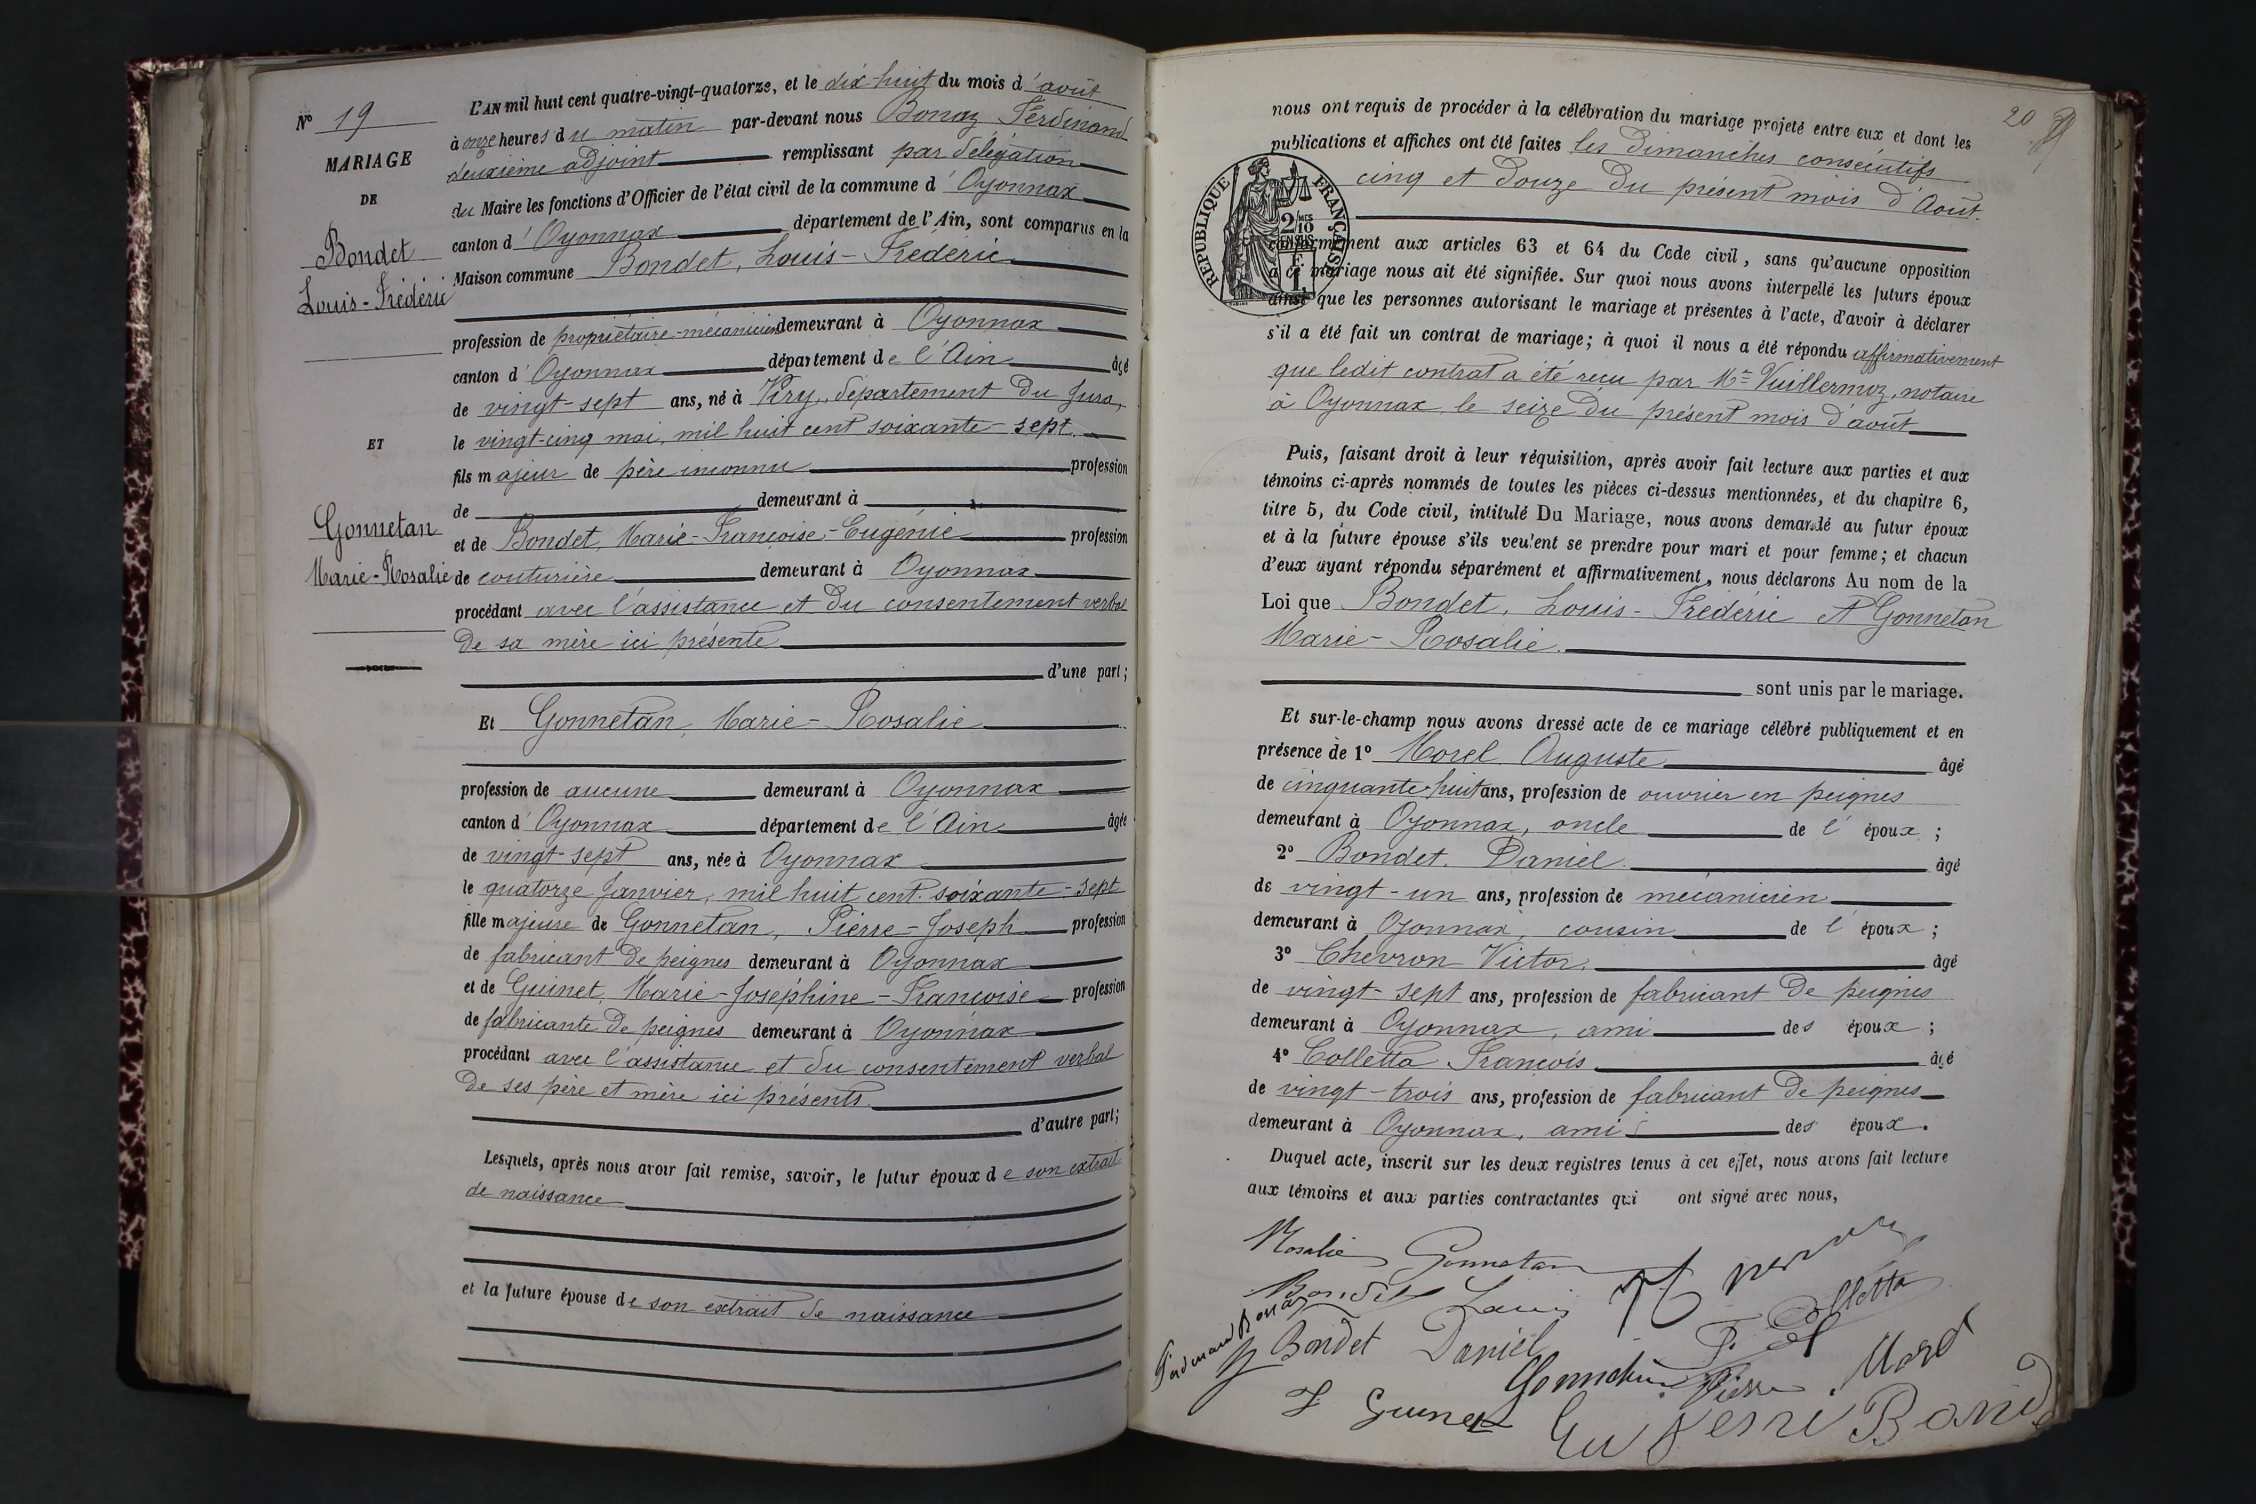 N° 19
MARIAGE
DE
Bondet
Louis-Frédéric
ET
Gonnetan
Marie-Rosalie
L'AN mil huit cent quatre-vingt-quatorze, et le dix-huit du mois d'août
à onze heures du matin par-devant nous Bonaz Ferdinand
deuxième adjoint remplissant par délégation
du Maire les fonctions d'Officier de l'état civil de la commune d'Oyonnax
canton d'Oyonnax département de l'Ain, sont comparus en la
Maison commune Bondet, Louis-Frédéric
profession de propriétaire-mécanicien demeurant à Oyonnax
canton d'Oyonnax département de l'Ain âgé
de vingt-sept ans, né à Viry, département du Jura,
le vingt-cinq mai, mil huit cent soixante-sept
fils majeur de père inconnu profession
de demeurant à
et de Bondet, Marie-Françoise-Eugénie profession
de couturière demeurant à Oyonnax
procédant avec l'assistance et du consentement verbal
de sa mère ici présente
d'une part;
Et Gonnetan, Marie-Rosalie
profession de aucune demeurant à Oyonnax
canton d'Oyonnax département de l'Ain âgée
de vingt-sept ans, née à Oyonnax
le quatorze Janvier, mil huit cent soixante-sept
fille majeure de Gonnetan, Pierre-Joseph profession
de fabricant de peignes demeurant à Oyonnax
et de Guinet, Marie-Joséphine-Françoise profession
de fabricante de peignes demeurant à Oyonnax
procédant avec l'assistance et du consentement verbal
de ses père et mère ici présents
d'autre part;
Lesquels, après nous avoir fait remise, savoir, le futur époux de son extrait
de naissance
et la future épouse de son extrait de naissance
20
nous ont requis de procéder à la célébration du mariage projeté entre eux et dont les
publications et affiches ont été faites les dimanches consécutifs
cinq et douze du présent mois d'Août.
RÉPUBLIQUE FRANÇAISE
2/10 MES
EN SUS
1 F.
conformément aux articles 63 et 64 du Code civil, sans qu'aucune opposition
à ce mariage nous ait été signifiée. Sur quoi nous avons interpellé les futurs époux
ainsi que les personnes autorisant le mariage et présentes à l'acte, d'avoir à déclarer
s'il a été fait un contrat de mariage; à quoi il nous a été répondu affirmativement
que ledit contrat a été reçu par Me Vuillermoz, notaire
à Oyonnax le seize du présent mois d'août
Puis, faisant droit à leur réquisition, après avoir fait lecture aux parties et aux
témoins ci-après nommés de toutes les pièces ci-dessus mentionnées, et du chapitre 6,
titre 5, du Code civil, intitulé Du Mariage, nous avons demandé au futur époux
et à la future épouse s'ils veulent se prendre pour mari et pour femme; et chacun
d'eux ayant répondu séparément et affirmativement, nous déclarons Au nom de la
Loi que Bondet, Louis-Frédéric et Gonnetan
Marie-Rosalie
sont unis par le mariage.
Et sur-le-champ nous avons dressé acte de ce mariage célébré publiquement et en
présence de 1° Morel Auguste âgé
de cinquante-huit ans, profession de ouvrier en peignes
demeurant à Oyonnax, oncle de l'époux;
2° Bondet Daniel âgé
de vingt-un ans, profession de mécanicien
demeurant à Oyonnax, cousin de l'époux;
3° Chevron Victor, âgé
de vingt-sept ans, profession de fabricant de peignes
demeurant à Oyonnax, ami des époux;
4° Colletta François âgé
de vingt-trois ans, profession de fabricant de peignes
demeurant à Oyonnax, ami des époux.
Duquel acte, inscrit sur les deux registres tenus à cet effet, nous avons fait lecture
aux témoins et aux parties contractantes qui ont signé avec nous,
Rosalie Gonnetan
Bondet Louis
Ferdinand Bonaz
Bondet Daniel
F. Colletta
Gonnetan Pierre
Morel
J Guinet